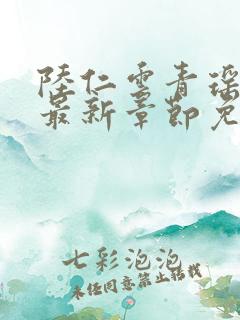 陸仁雲青瑶
最新章節免
七彩泡泡
未经同意禁止转载